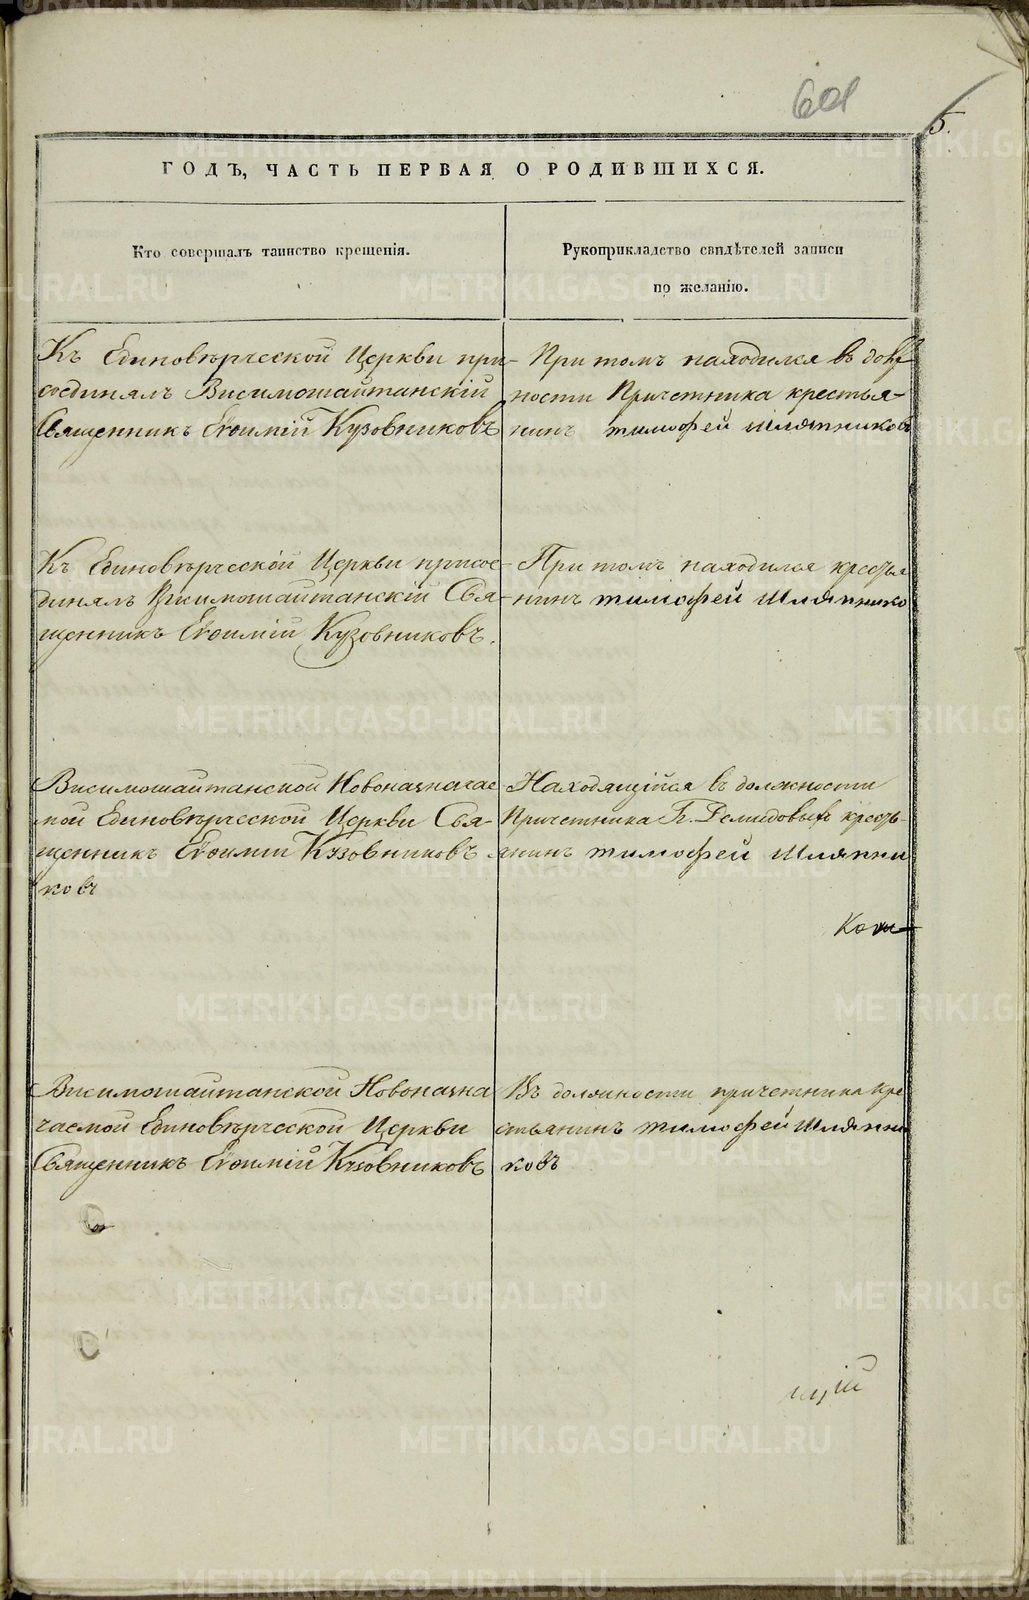 601
5.
ГОДЪ, ЧАСТЬ ПЕРВАЯ О РОДИВШИХСЯ.
Кто совершалъ таинство крещенія.
Рукоприкладство свидѣтелей записи
по желанію.
Къ Единовѣрческой Церкви при-
соединялъ Висимошайтанскій
Священникъ Евѳимій Кузовниковъ
При томъ находился въ
ности Причетника крестья-
нинъ тимофей Шляпниковъ
Къ Единовѣрческой Церкви присое-
динялъ Висимошайтанскій Свя-
щенникъ Евѳимій Кузовниковъ.
При томъ находился крестья
нинъ тимофей Шляпнико
Висимошайтанской Новоназначае
мой Единовѣрческой Церкви Свя-
щенникъ Евѳимій Кузовниковъ
ковъ
Находящійся въ должности
Причетника Г. Демидовыхъ кресть-
янинъ тимофей Шляпни
Висимошайтанской Новоназна
чаемой Единовѣрческой Церкви
Священникъ Евѳимій Кузовниковъ
Въ должности причетника кре
стьянинъ тимофей Шляпни
ковъ
щій
METRIKI.GASO-URAL.RU